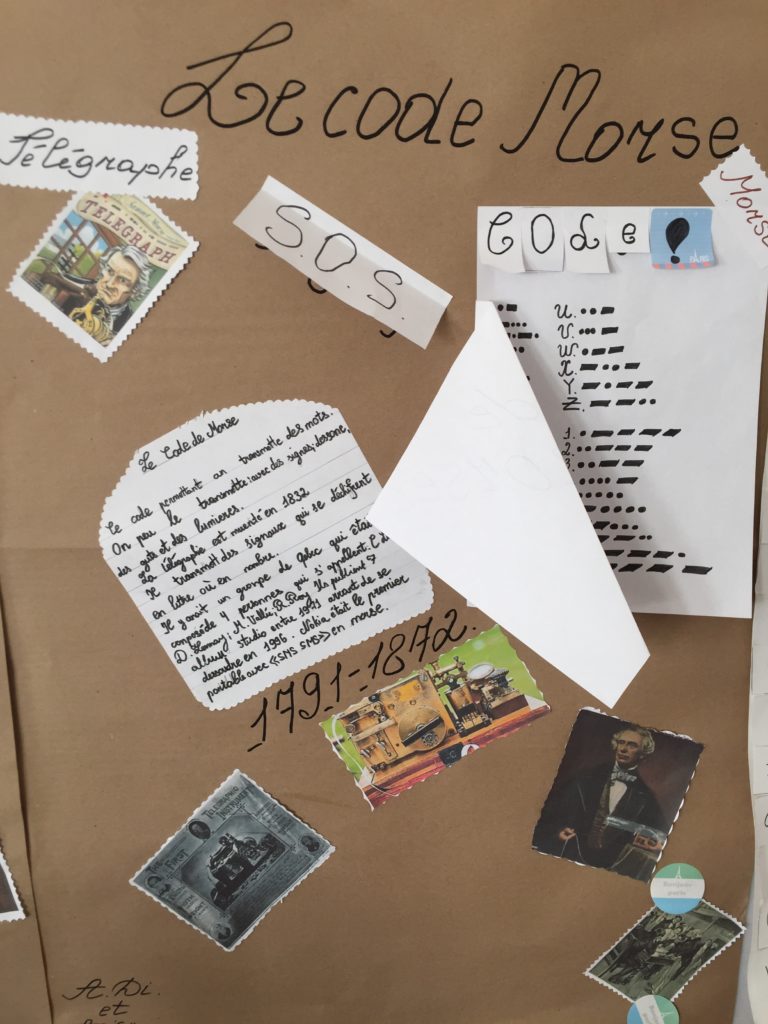 Le code Morse
Télégraphe
TELEGRAPH
S.O.S.
Code !
Morse
U.
V.
W.
X.
Y.
Z.
1.
2.
3.
Le Code de Morse
Le code permettant un transmotte des mots.
On peu le transmotte: avec des signes; dessons,
des gste et des lumieres.
La télégraphe est inventé en 1832
Il transmott des signaux qui se déchifrent
en lettre où en nombre.
Il y avait un groupe de qui était
composéde 4 personnes qui s'appellent: C
D. Lemay; M. Vallé; R. Roy Ils publient 7
album studio entre 1991 avant de se
dessoudre en 1996. Nokia était le premier
portable avec «SMS SMS» en morse.
1791-1872.
TELEGRAPHIC
INSTRUMENT
FIRST
A. Di.
et